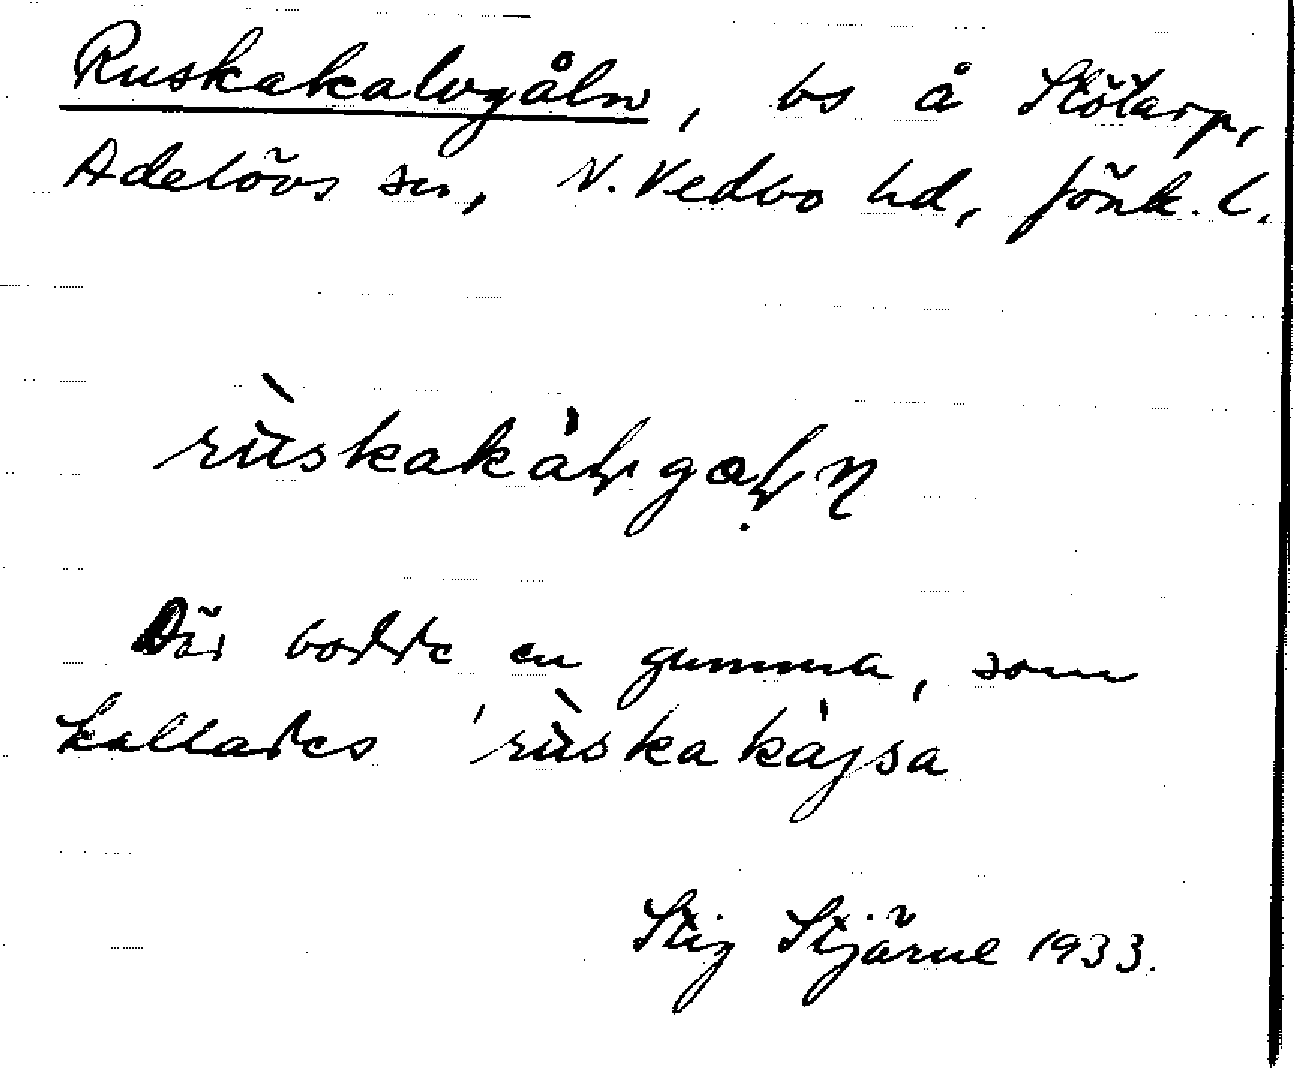 Ruskakalvgåln, bs å Stötarp,
Adelövs sn, N. Vedbo hd, Jönk. l.
Där bodde en gumma, som
kallades 'rùskakàjsa
Stig Stjärne 1933.